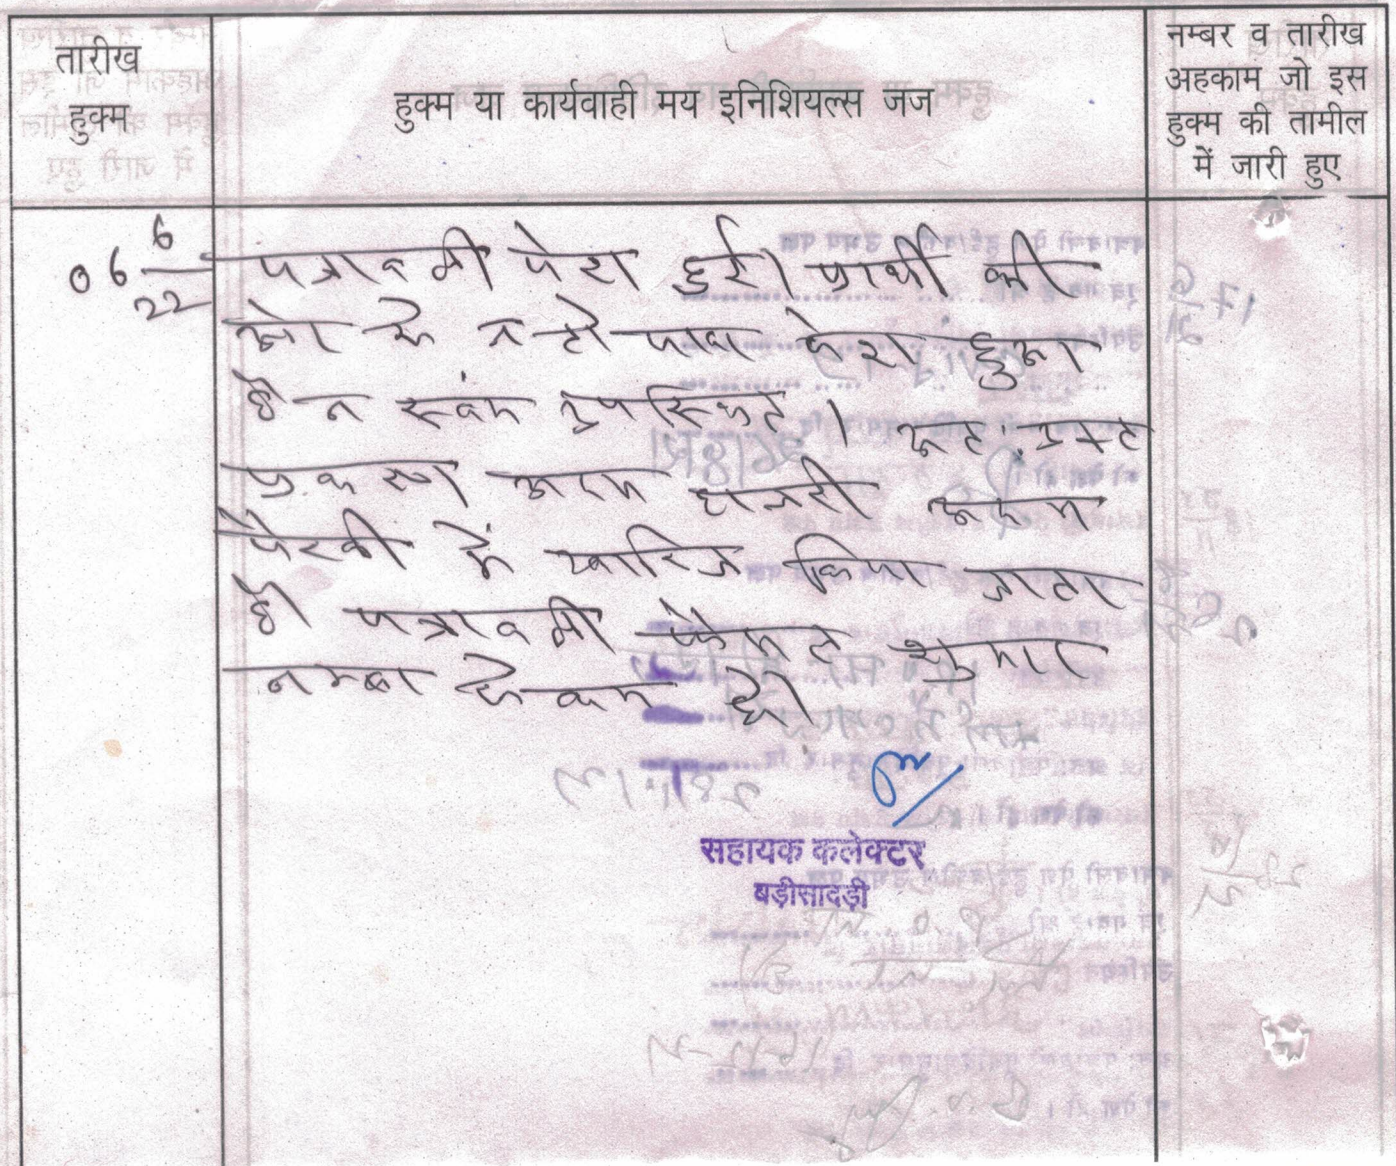 तारीख
हुक्म
हुक्म या कार्यवाही मय इनिशियल्स जज
नम्बर व तारीख
अहकाम जो इस
हुक्म की तामील
में जारी हुए
06 6/22
पत्रावली पेश हुई। प्रार्थी की
ओर से न तो पेश हुआ
है न स्वंय उपस्थित। अत: उक्त
प्रकरण अदम हाजरी अदम
पैरवी में खारिज किया जाता
है। पत्रावली फैसल शुमार
नम्बर से कम हो।
सहायक कलेक्टर
बड़ीसादड़ी